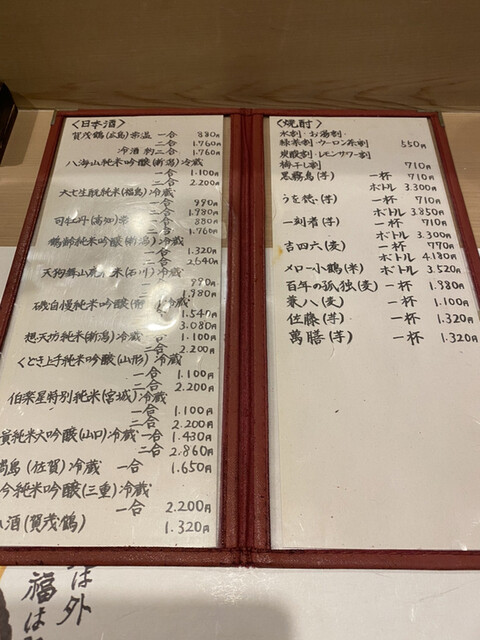 〈日本酒〉
賀茂鶴(広島)常温 一合 880円
二合 1.760
冷酒 約二合 1.760
八海山純米吟醸(新潟)冷蔵
一合 1.100
二合 2.200
大七生酛純米(福島)冷蔵
一合 990
二合 1.980
司牡丹(高知)常 880
二合 1.760
鶴齢純米吟醸(新潟)冷蔵
一合 1.320
二合 2.640
天狗舞山廃 米(石川)冷蔵
一合 990
二合 1.980
磯自慢純米吟醸 冷蔵
一合 1.540
二合 3.080
想天坊純米(新潟)冷蔵
一合 1.100
二合 2.200
くどき上手純米吟醸(山形)冷蔵
一合 1.100
二合 2.200
伯楽星特別純米(宮城)冷蔵
一合 1.100円
二合 2.200円
純米大吟醸(山口)冷蔵 一合 1.430円
二合 2.860円
島(佐賀)冷蔵 一合 1.650円
今純米吟醸(三重)冷蔵
一合 2.200円
酒(賀茂鶴) 1.320円
〈焼酎〉
水割・お湯割・
緑茶割・ウーロン茶割 550円
炭酸割・レモンサワー割
梅干し割 710円
黒霧島(芋) 一杯 710円
ボトル 3.300円
うを徳(芋) 一杯 710円
ボトル 3.850円
一刻者(芋) 一杯 710円
ボトル 3.300円
吉四六(麦) 一杯 770円
ボトル 4.180円
メロー小鶴(米) ボトル 3.520円
百年の孤独(麦) 一杯 1.980円
兼八(麦) 一杯 1.100円
佐藤(芋) 一杯 1.320円
萬膳(芋) 一杯 1.320円
は外
福は